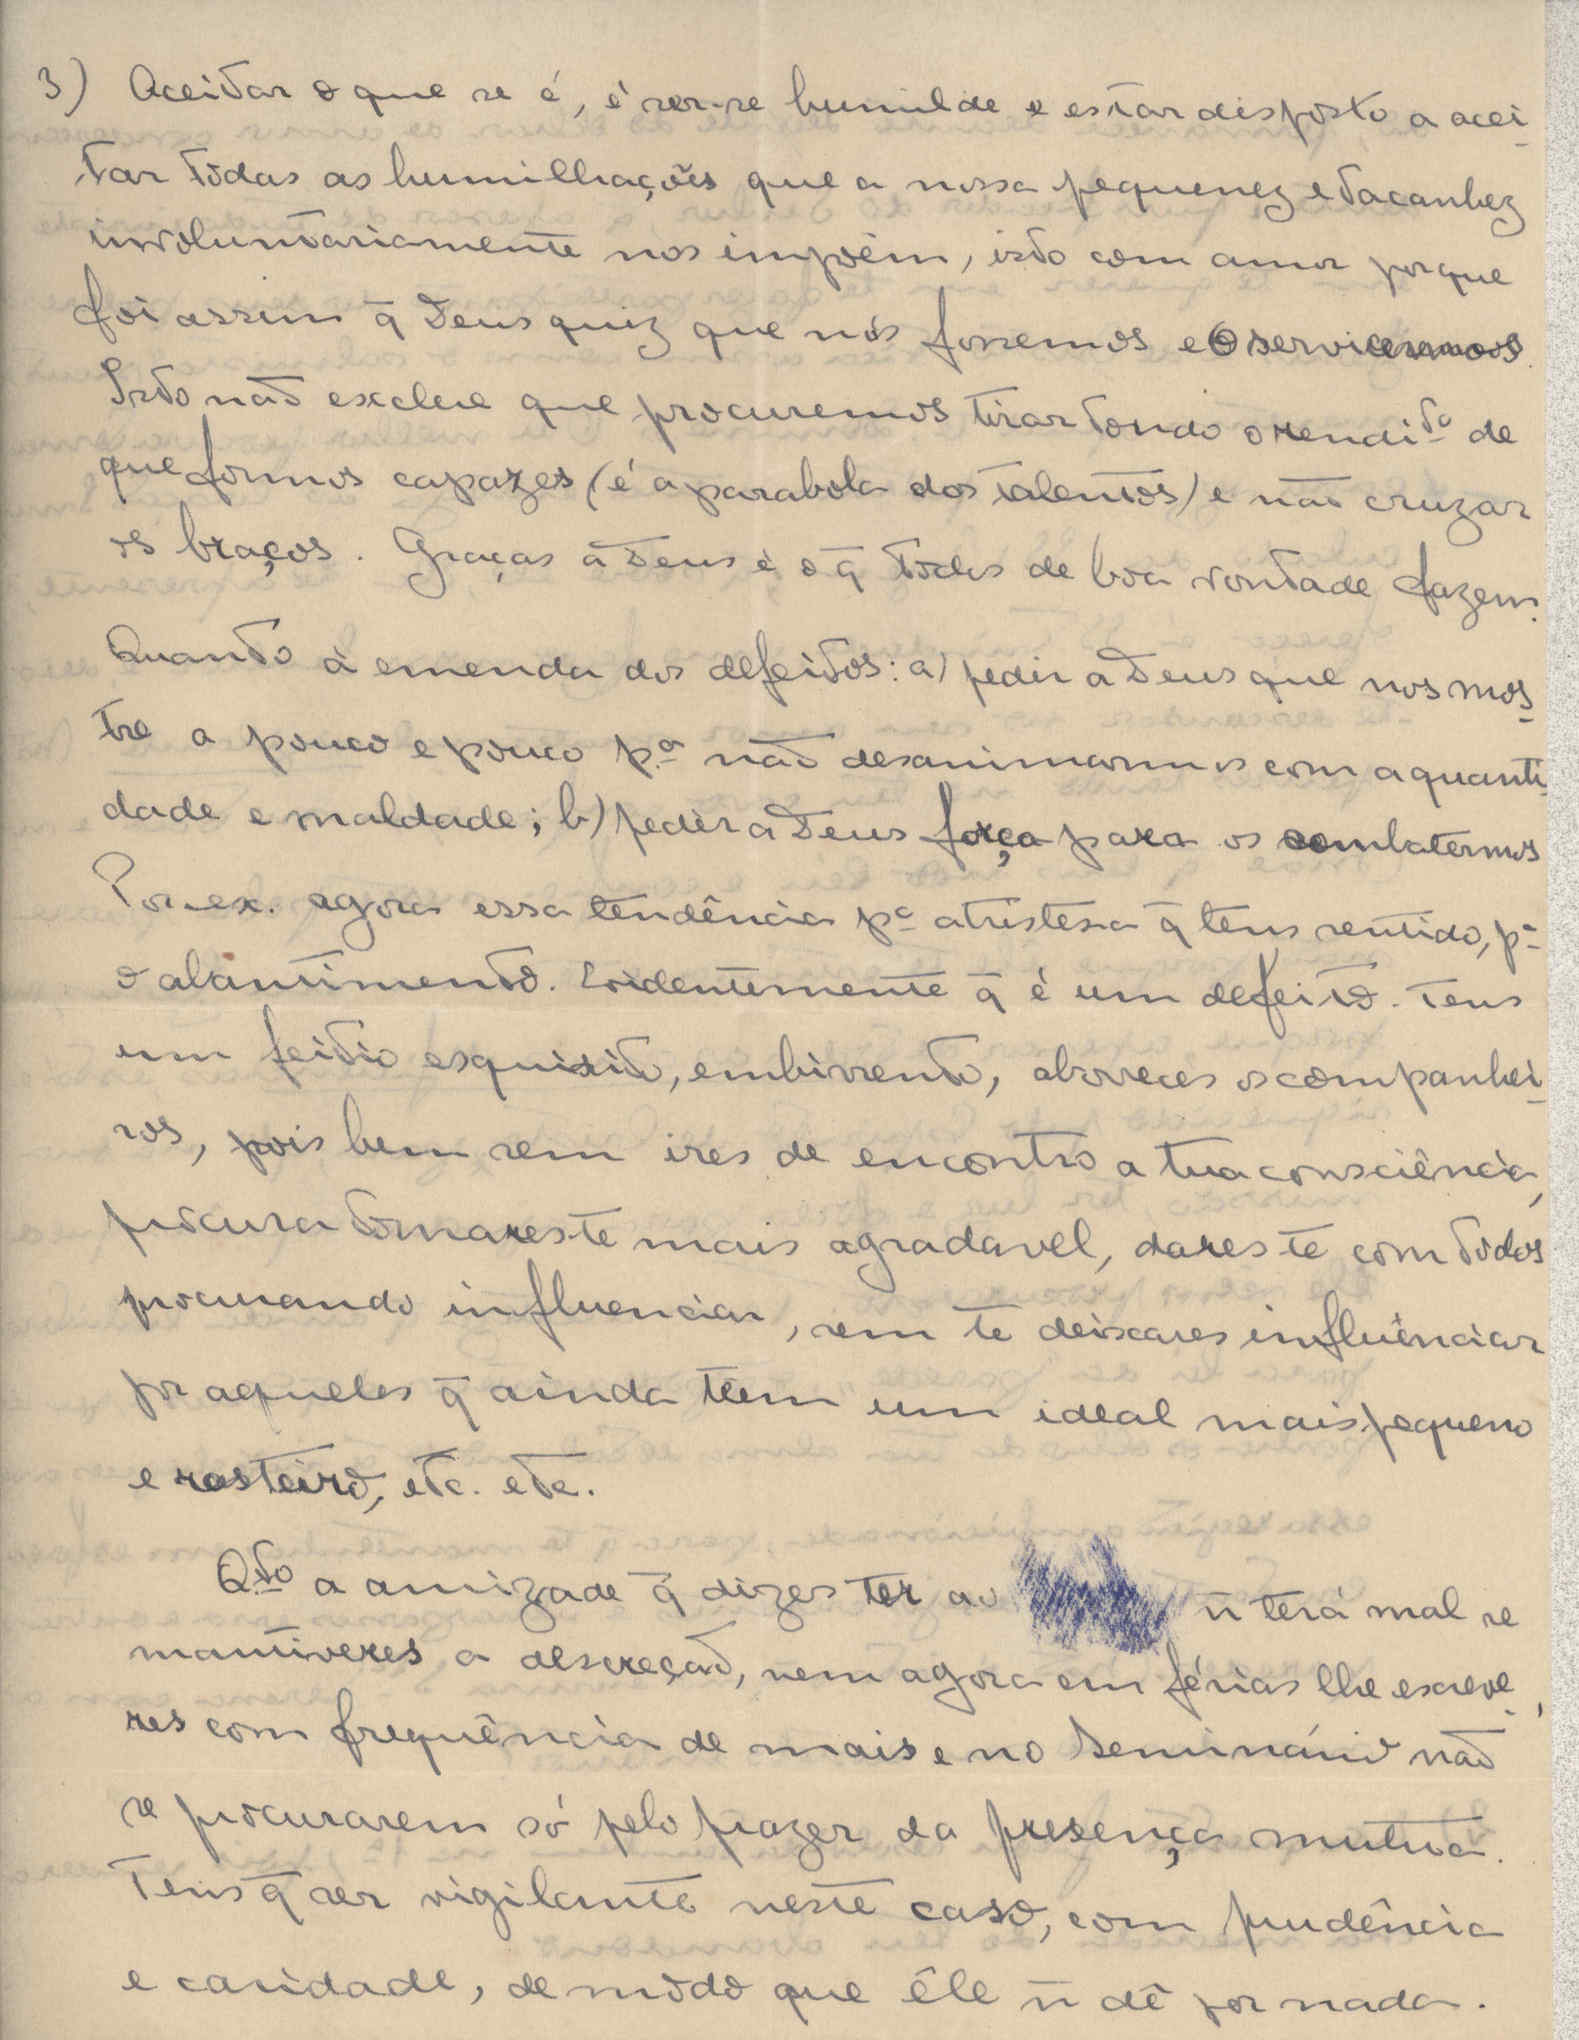 3) Aceitar o que se é, é ser-se humilde e estar disposto a acei-
tar tôdas as humilhações que a nossa pequenez e tacanhez
involuntariamente nos impõem, isto com amor porque
foi assim q̄ Deus quiz que nós fossemos e O servissemos.
Isto não exclue que procuremos tirar todo o rendi.to de
que formos capazes (é a parabola dos talentos) e não cruzar
os braços. Graças a Deus é o q̄ todos de boa vontade fazem.
Quanto à emenda dos defeitos: a) pedir a Deus que nos mos-
tre a pouco e pouco p.a não desanimarmos com a quanti-
dade e maldade; b) pedir a Deus força para os combatermos
Por ex. agora essa tendência p.a a tristesa q̄ tens sentido, p.a
o abatimento. Evidentemente q̄ é um defeito. Tens
um feitio esquisito, embirrento, aborreces os companhei-
ros, pois bem sem ires de encontro a tua consciência,
procura tornares-te mais agradavel, dares te com todos
procurando influenciar, sem te deixares influênciar
por aqueles q̄ ainda têem um ideal mais pequeno
e rasteiro, etc. etc.
Q.to a amizade q̄ dizes ter ao n̄ terá mal se
mantiveres a descreção, nem agora em férias lhe escreve-
res com frequência de mais e no Seminário não
se procurarem só pelo prazer da presença mutua.
Tens q̄ ser vigilante neste caso, com prudência
e caridade, de modo que êle n̄ dê por nada.